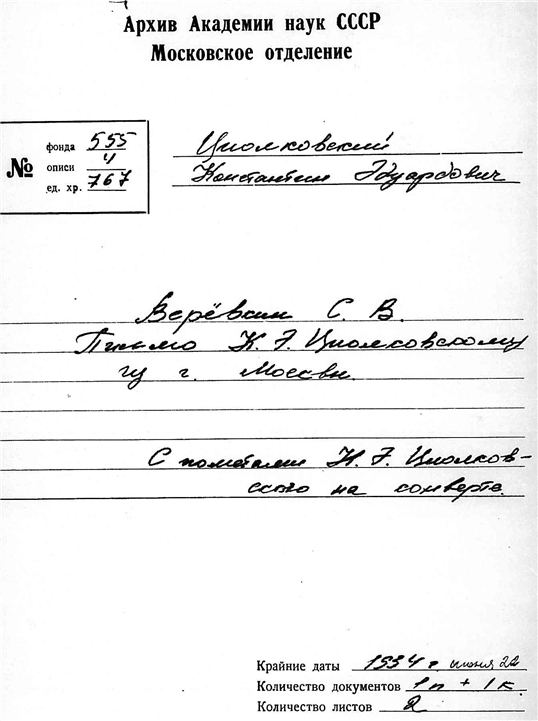 Архив Академии наук СССР
Московское отделение
№
фонда 555
описи 4
ед. хр. 767
Циолковский
Константин Эдуардович
Верёвкин С. В.
Письмо К. Э. Циолковскому
из г. Москвы.
С пометами К. Э. Циолков-
ского на конверте.
Крайние даты 1934 г. июня 22
Количество документов 1п + 1к.
Количество листов 2